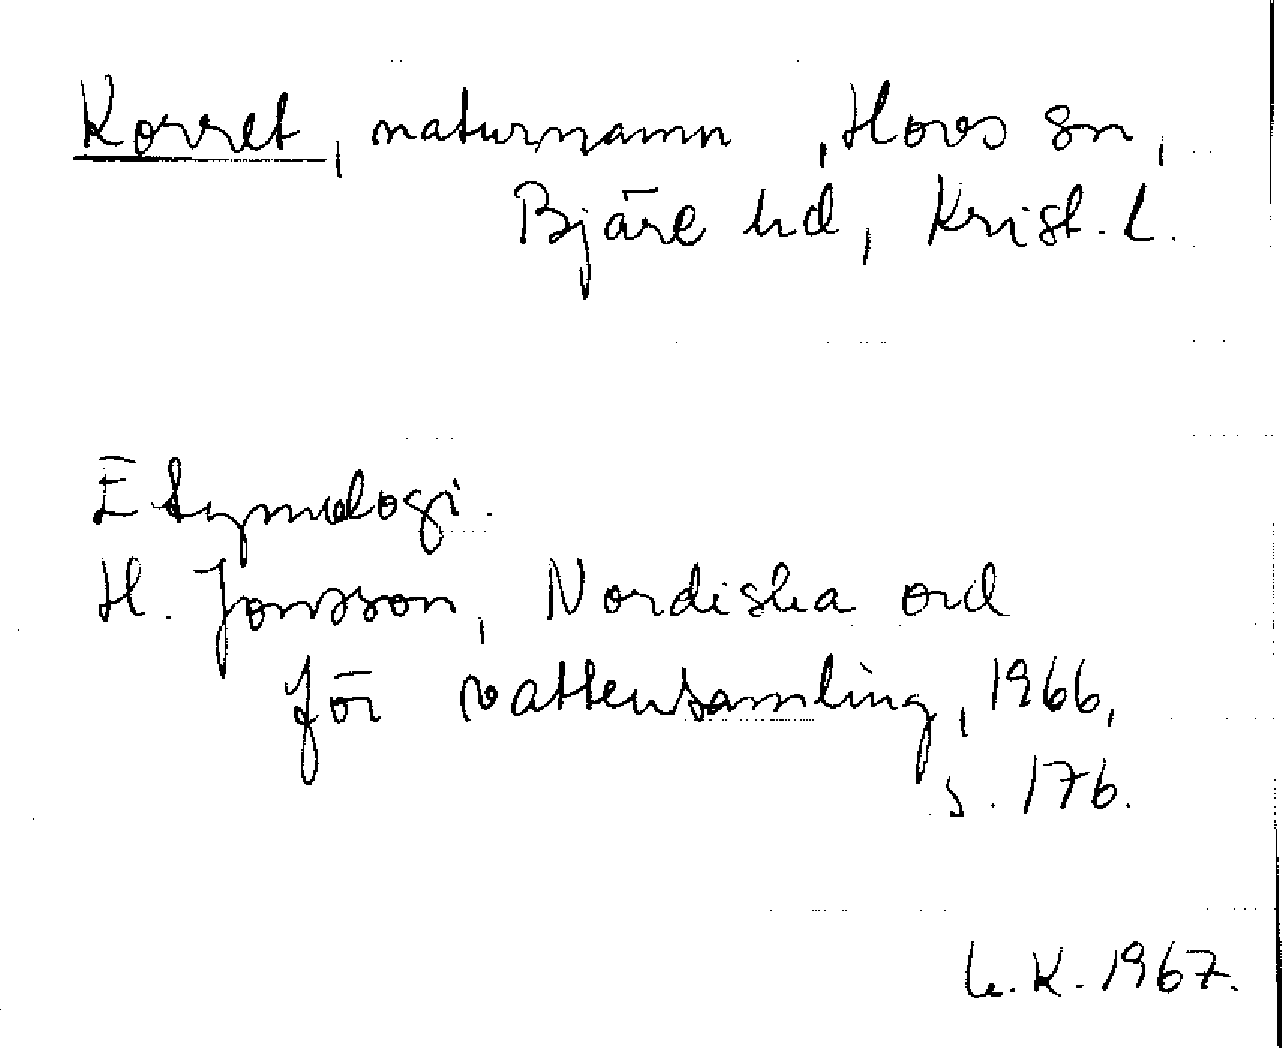 Korret, naturnamn, Hovs sn,
Bjäre hd, Krist. L.
Etymologi.
H. Jonsson, Nordiska ord
för vattensamling, 1966,
s. 176.
L.K. 1967.